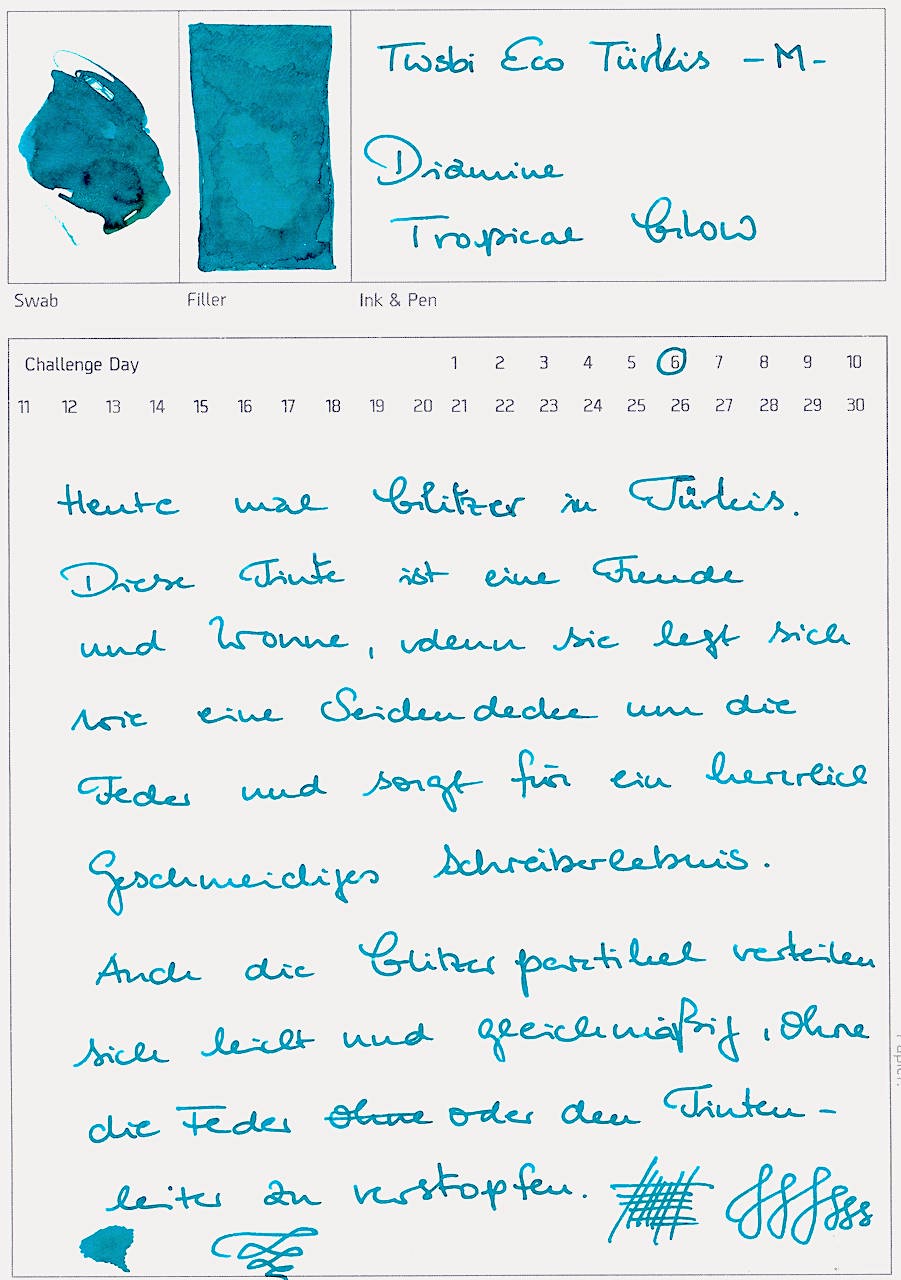 Twsbi Eco Türkis - M -
Diamine
Tropical Glow
Swab Filler Ink & Pen
Challenge Day 1 2 3 4 5 6 7 8 9 10
11 12 13 14 15 16 17 18 19 20 21 22 23 24 25 26 27 28 29 30
Heute mal Glitzer in Türkis.
Diese Tinte ist eine Freude
und Wonne, denn sie legt sich
wie eine Seidendecke um die
Feder und sorgt für ein herrlich
geschmeidiges Schreiberlebnis.
Auch die Glitzerpartikel verteilen
sich leicht und gleichmäßig, ohne
die Feder ohne oder den Tinten-
leiter zu verstopfen.